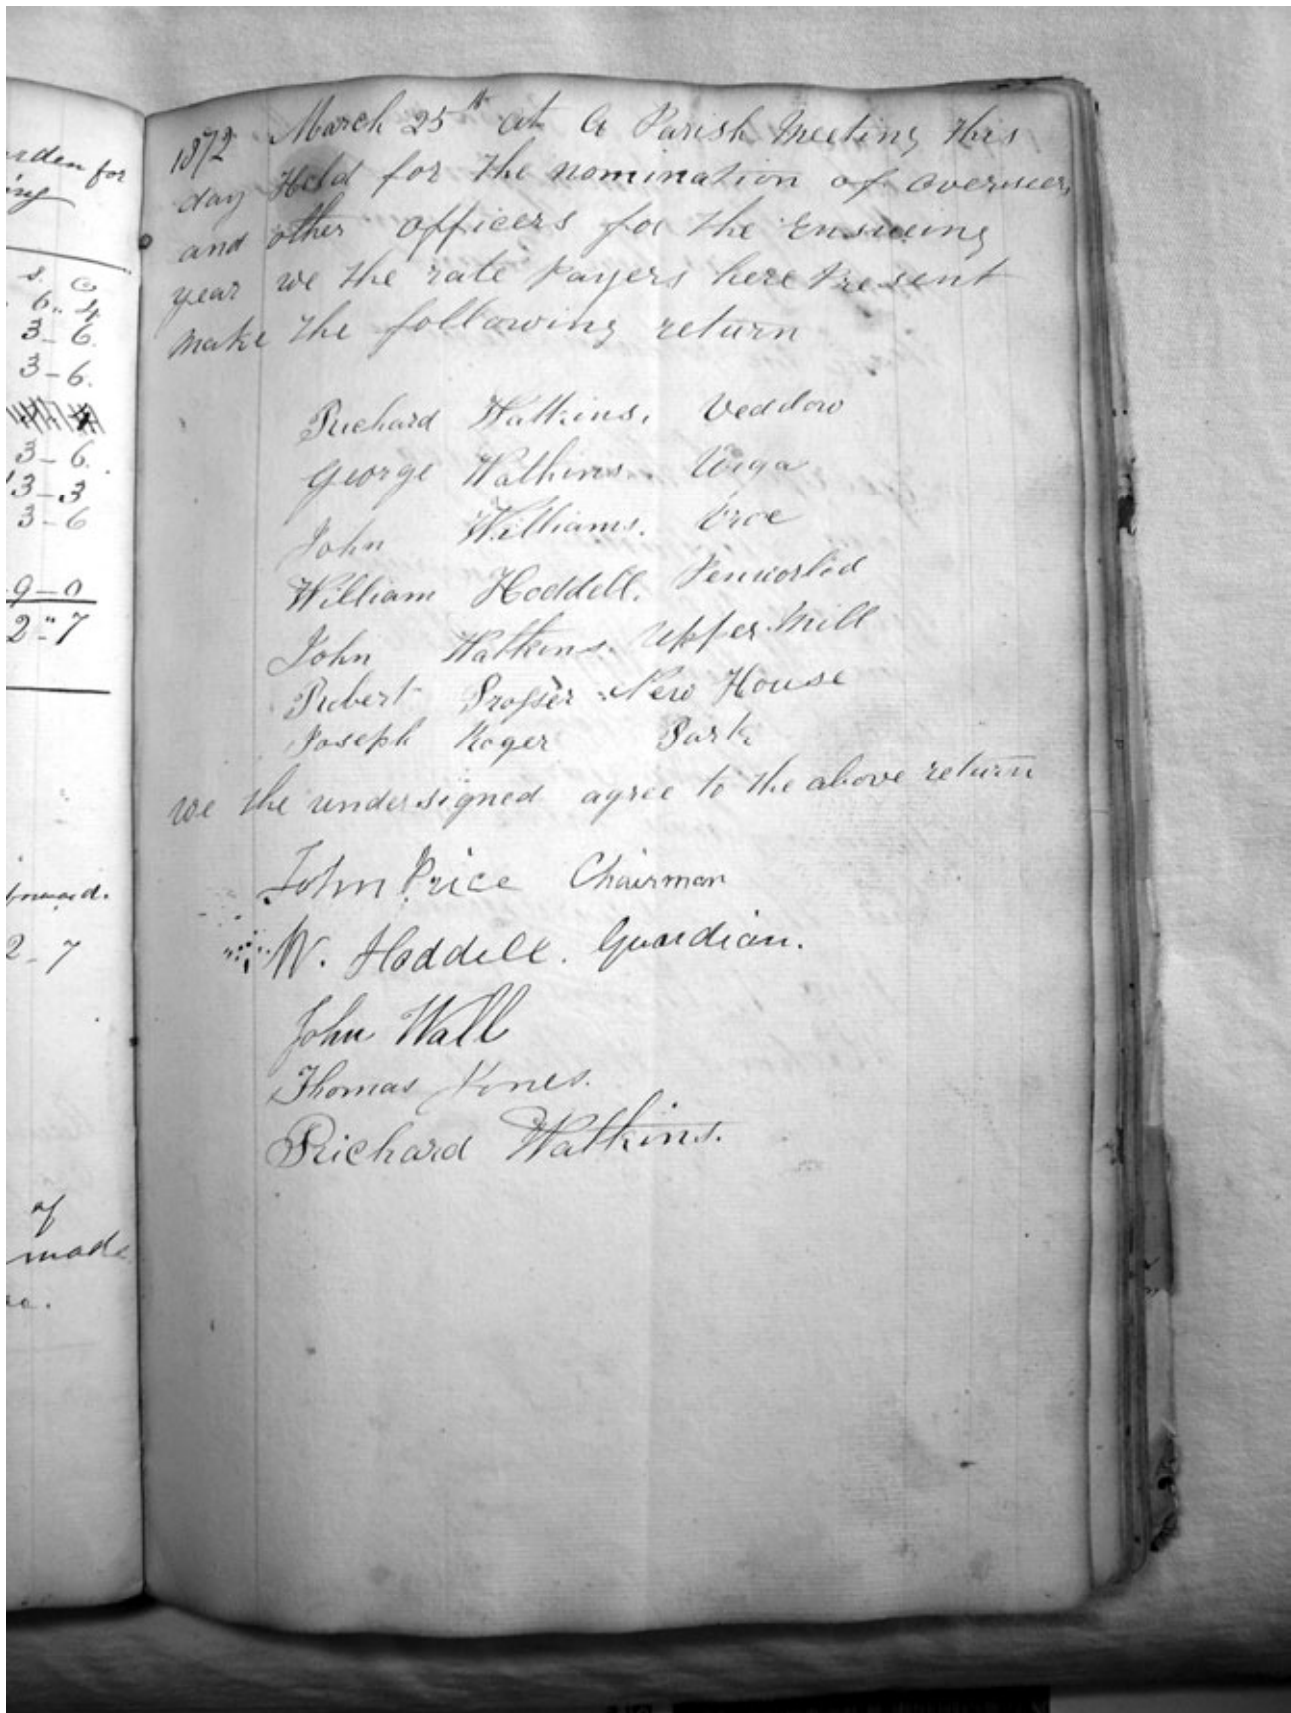 arden for
ing
s. d
6 " 4
3 - 6.
3 - 6.
3 - 6.
13 - 3
3 - 6
9 - 0
2 " 7
forward.
2 - 7
of
made
1872 March 25th at a Parish Meeting this
day Held for the nomination of overseers
and other officers for the Ensueing
year we the rate Payers here Present
make the following return
Richard Watkins. Veddow
George Watkins. Wega
John Williams. Vroe
William Hoddell. Penworlod
John Watkins. Upper Mill
Robert Prosser New House
Joseph Roger Park
we the undersigned agree to the above return
John Price Chairman
W. Hoddell. Guardian.
John Wall
Thomas Jones.
Richard Watkins.